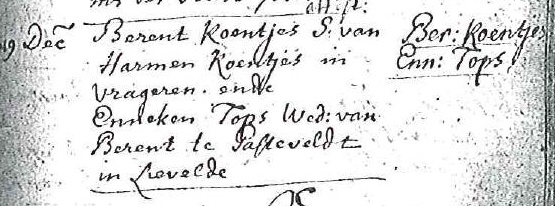 19 Dec Berent Koentjes S: van
Harmen Koentjes in
Vrageren. ende
Enneken Tops Wed: van
Berent te Pasteveldt
in Lievelde
Ber: Koentjes
Enn: Tops